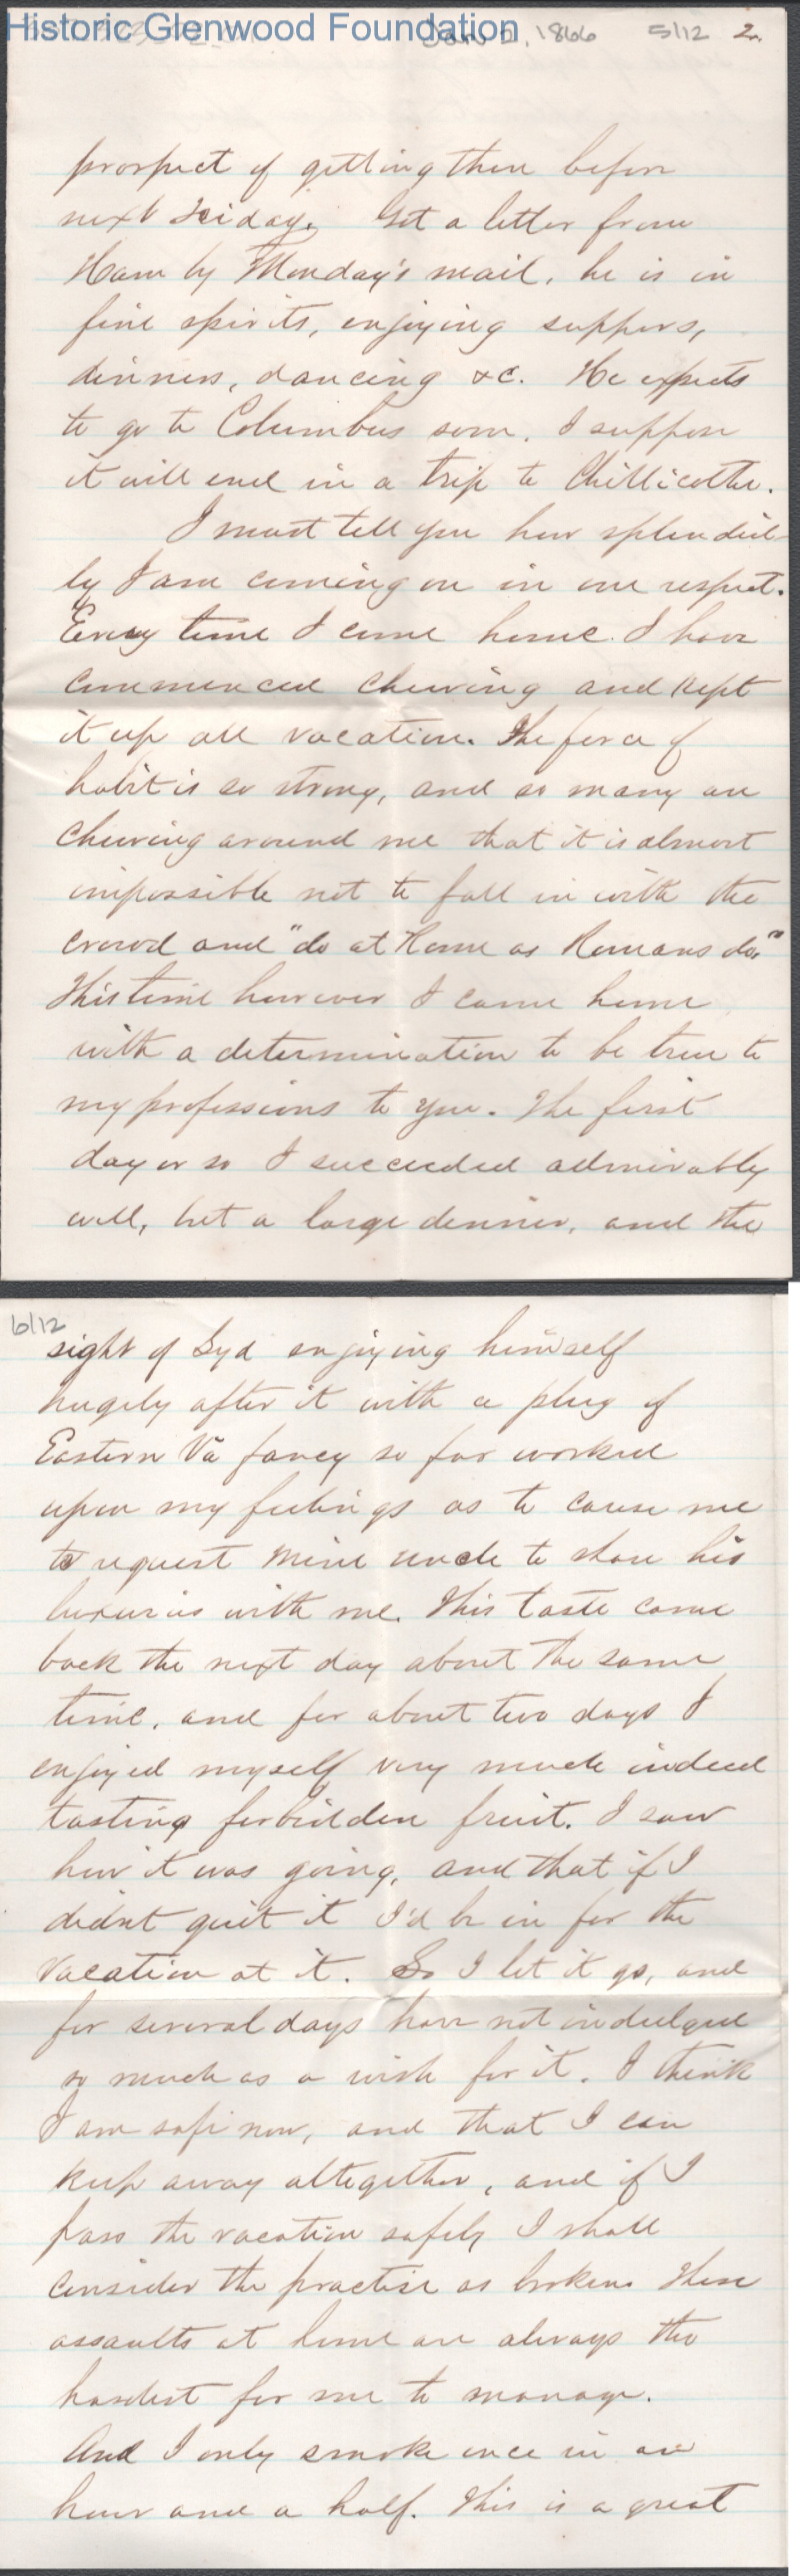 Historic Glenwood Foundation
Jan 2, 1866 5/12 2.
prospect of getting there before
next Friday. Got a letter from
Ham by Monday's mail. he is in
fine spirits, enjoying suppers,
dinners, dancing &c. He expects
to go to Columbus soon. I suppose
it will end in a trip to Chillicothe.
I must tell you how splendid-
ly I am coming on in one respect.
Every time I come home I have
commenced chewing and kept
it up all vacation. The force of
habit is so strong, and so many are
chewing around me that it is almost
impossible not to fall in with the
crowd and "do at Rome as Romans do."
This time however I came home
with a determination to be true to
my professions to you. The first
day or so I succeeded admirably
well, but a large dinner, and the
6/12
sight of Syd enjoying himself
hugely after it with a plug of
Eastern Va fancy so far worked
upon my feelings as to cause me
to request mine uncle to share his
luxuries with me. This taste came
back the next day about the same
time, and for about two days I
enjoyed myself very much indeed
tasting forbidden fruit. I saw
how it was going, and that if I
didnt quit it I'd be in for the
vacation at it. So I let it go, and
for several days have not indulged
so much as a wish for it. I think
I am safe now, and that I can
keep away altogether, and if I
pass the vacation safely I shall
consider the practise as broken. These
assaults at home are always the
hardest for me to manage.
And I only smoke once in an
hour and a half. This is a great